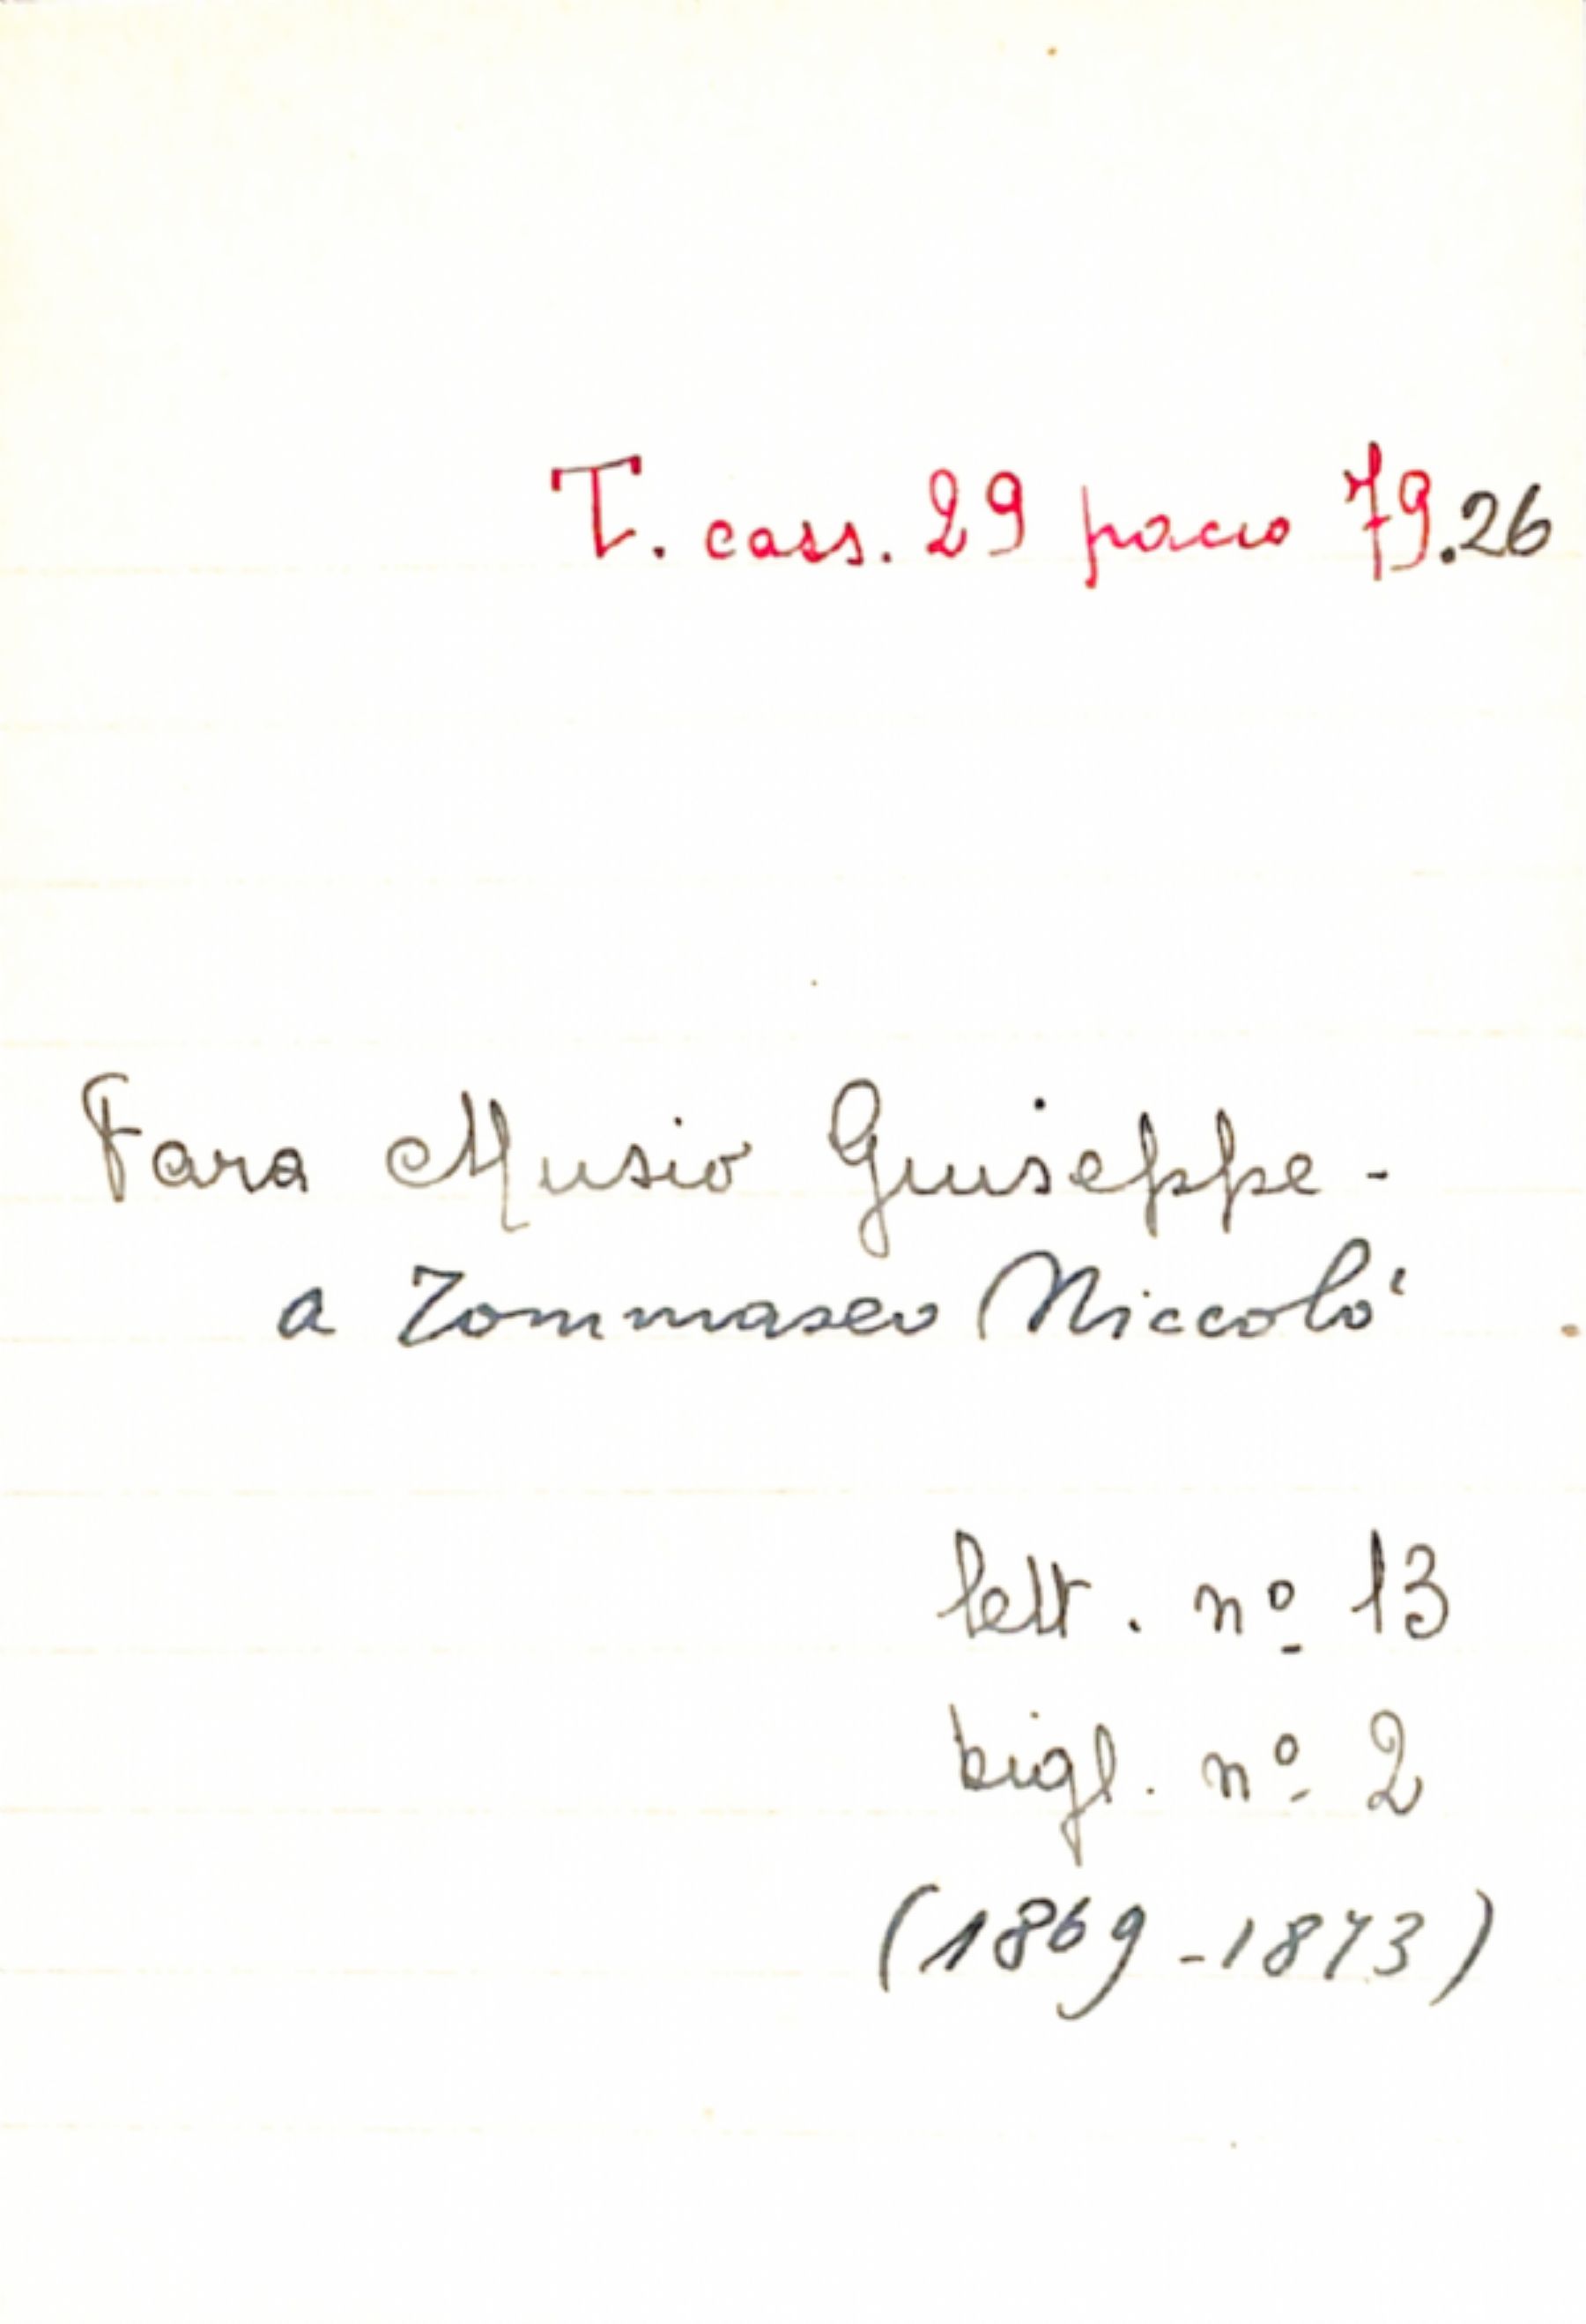 T. cass. 29 pacco 79.26
Fara Musio Giuseppe -
a Tommaseo Niccolò
lett. nº 13
bigl. nº 2
(1869-1873)